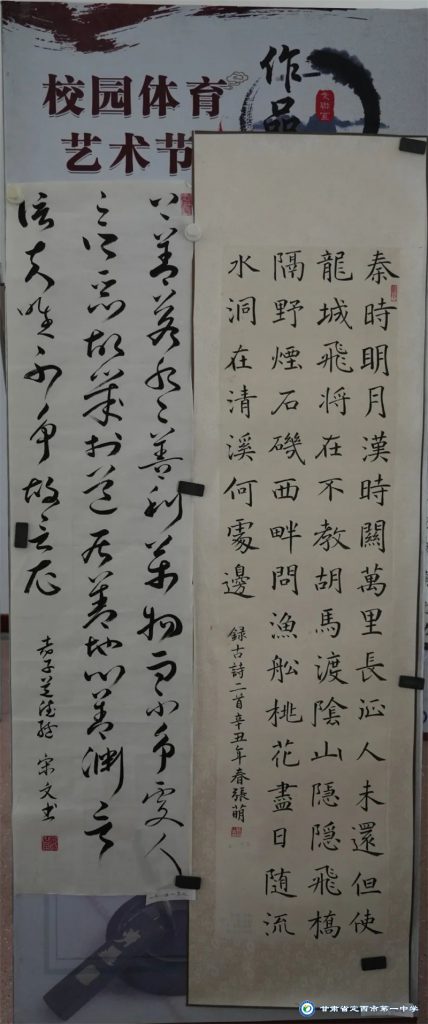 校园体育
艺术节
作品
秦時明月漢時關萬里長征人未還但使
龍城飛將在不教胡馬渡陰山隱隱飛橋
隔野煙石磯西畔問漁船桃花盡日隨流
水洞在清溪何處邊
錄古詩二首辛丑年春張萌
上善若水〻善利萬物而不争處人
之所惡故幾於道居善地心善渊言
信夫唯不争故無尤
老子道德经 宋文书
甘肃省定西市第一中学